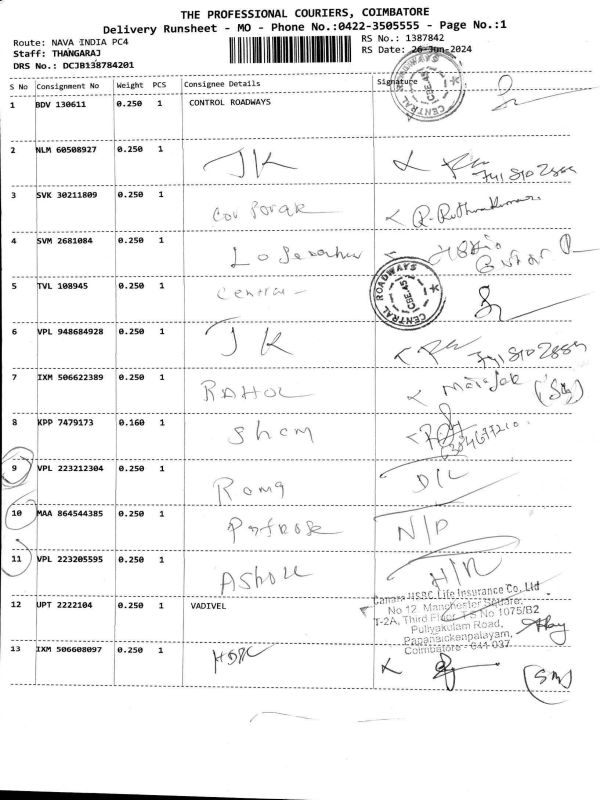 THE PROFESSIONAL COURIERS, COIMBATORE
Delivery Runsheet - MO - Phone No.:0422-3505555 - Page No.:1
Route: NAVA INDIA PC4
RS No.: 1387842
Staff: THANGARAJ
RS Date: 26-Jun-2024
DRS No.: DCJB138784201
S No Consignment No Weight PCS Consignee Details Signature
CENTRAL ROADWAYS CBE-45
1 BDV 130611 0.250 1 CONTROL ROADWAYS
2 NLM 60508927 0.250 1 JK
3 SVK 30211809 0.250 1
4 SVM 2681084 0.250 1
5 TVL 108945 0.250 1 Central
CENTRAL ROADWAYS CBE-45
6 VPL 948684928 0.250 1 JK
7 IXM 506622389 0.250 1 RAHOL
8 KPP 7479173 0.160 1 Sham
9 VPL 223212304 0.250 1 D/L
10 MAA 864544385 0.250 1 N/P
11 VPL 223205595 0.250 1 ASHOK
Canara HSBC Life Insurance Co. Ltd
12 UPT 2222104 0.250 1 VADIVEL
No 12 Manchester Square,
T-2A, Third Floor, T S No 1075/B2
Puliyakulam Road,
Papanaickenpalayam,
Coimbatore - 641 037
13 IXM 506608097 0.250 1 HSBC